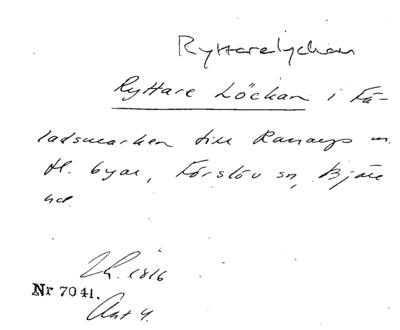 Ryttarelyckan
Ryttare Löckan i Fä-
ladsmarken till Ranarps m.
fl. byar, Förslöv sn, Bjäre
hd.
1816
Nr 7041.
Akt 4.